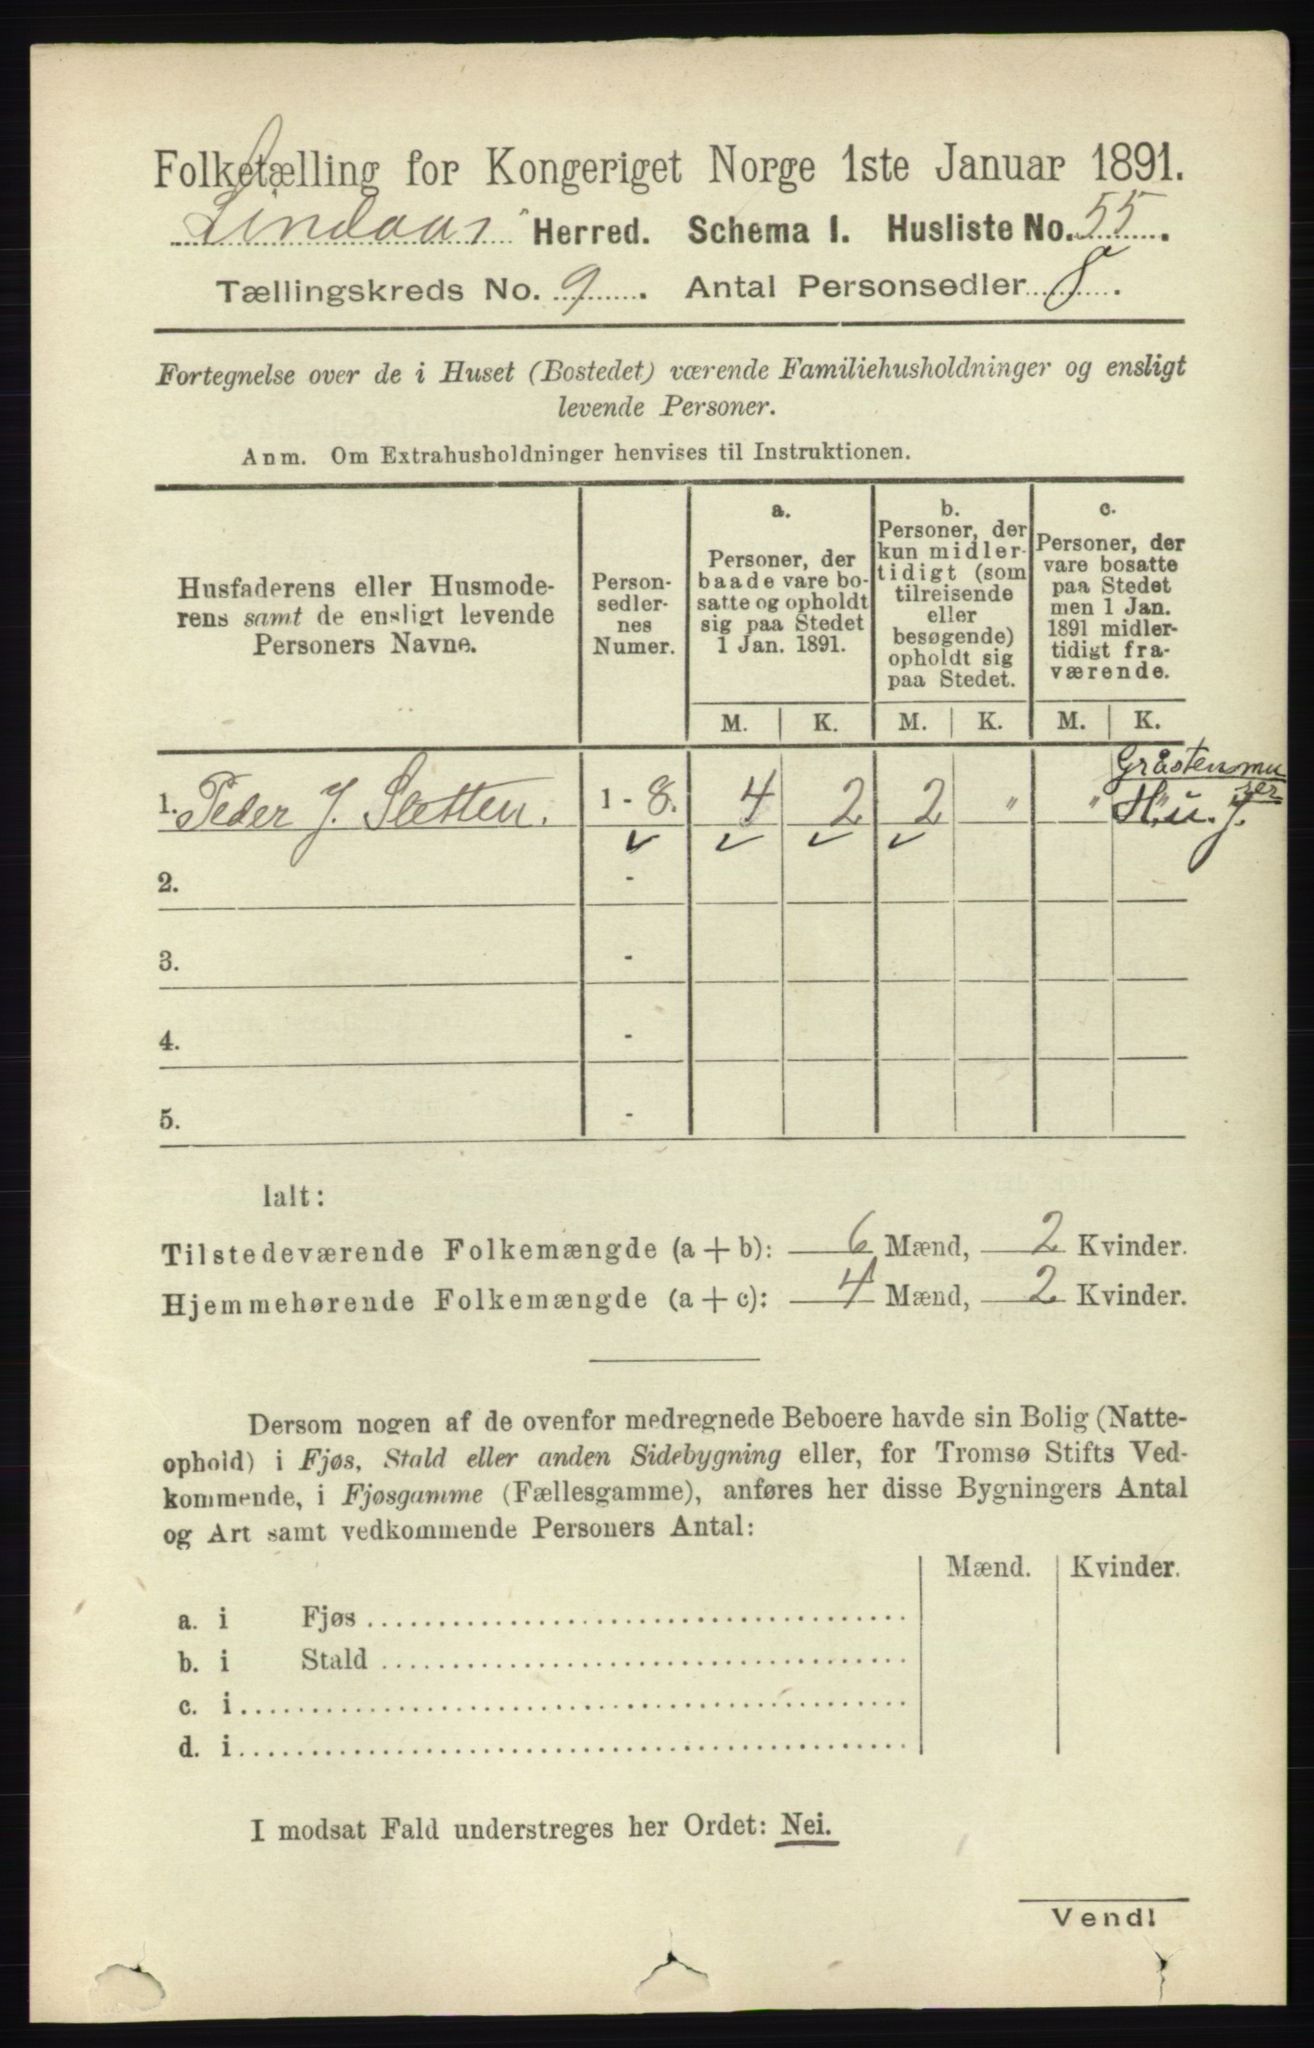 Folketælling for Kongeriget Norge 1ste Januar 1891.
Lindaas Herred. Schema I. Husliste No. 55.
Tællingskreds No. 9. Antal Personsedler 8.
Fortegnelse over de i Huset (Bostedet) værende Familiehusholdninger og ensligt
levende Personer.
Anm. Om Extrahusholdninger henvises til Instruktionen.
Husfaderens eller Husmode-
rens samt de ensligt levende
Personers Navne.
Person-
sedler-
nes
Numer.
a.
Personer, der
baade vare bo-
satte og opholdt
sig paa Stedet
1 Jan. 1891.
b.
Personer, der
kun midler-
tidigt (som
tilreisende
eller
besøgende)
opholdt sig
paa Stedet.
c.
Personer, der
vare bosatte
paa Stedet
men 1 Jan.
1891 midler-
tidigt fra-
værende.
M. K. M. K. M. K.
Gråstensmu
rer
1. Peder J. Sletten. 1 - 8. 4 2 2 " " H. u. J.
2. -
3. -
4. -
5. -
Ialt:
Tilstedeværende Folkemængde (a + b): 6 Mænd, 2 Kvinder.
Hjemmehørende Folkemængde (a + c): 4 Mænd, 2 Kvinder.
Dersom nogen af de ovenfor medregnede Beboere havde sin Bolig (Natte-
ophold) i Fjøs, Stald eller anden Sidebygning eller, for Tromsø Stifts Ved-
kommende, i Fjøsgamme (Fællesgamme), anføres her disse Bygningers Antal
og Art samt vedkommende Personers Antal:
Mænd. Kvinder.
a. i Fjøs
b. i Stald
c. i
d. i
I modsat Fald understreges her Ordet: Nei.
Vend!